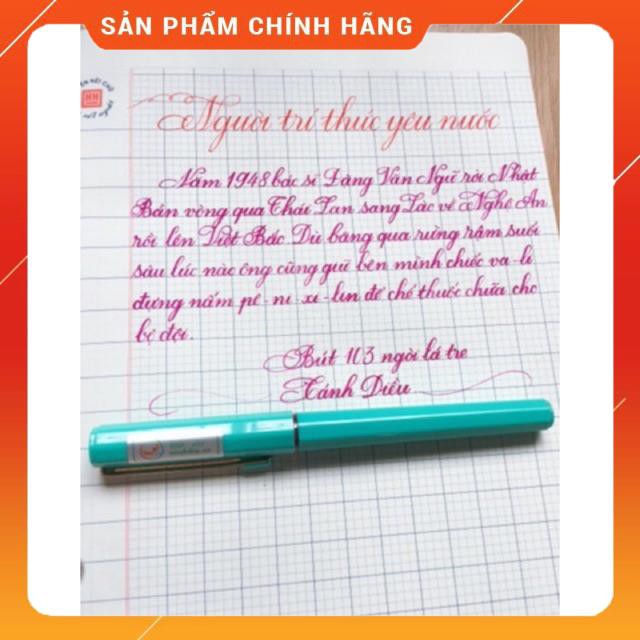 SẢN PHẨM CHÍNH HÃNG
Người trí thức yêu nước
Năm 1948 bác sĩ Đặng Văn Ngữ rời Nhật
Bản vòng qua Thái Lan sang Lào về Nghệ An
rồi lên Việt Bắc. Dù băng qua rừng rậm suối
sâu lúc nào ông cũng giữ bên mình chiếc va-li
đựng nấm pê-ni-xi-lin để chế thuốc chữa cho
bộ đội.
Bút 103 ngòi lá tre
Tánh Diều